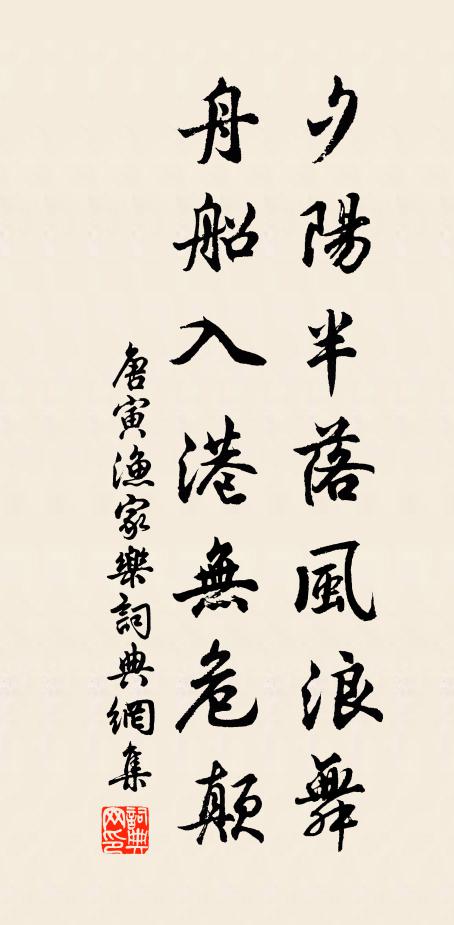 夕陽半落風浪舞
舟船入港無危顛
唐寅漁家樂詞典網集
詞典網印